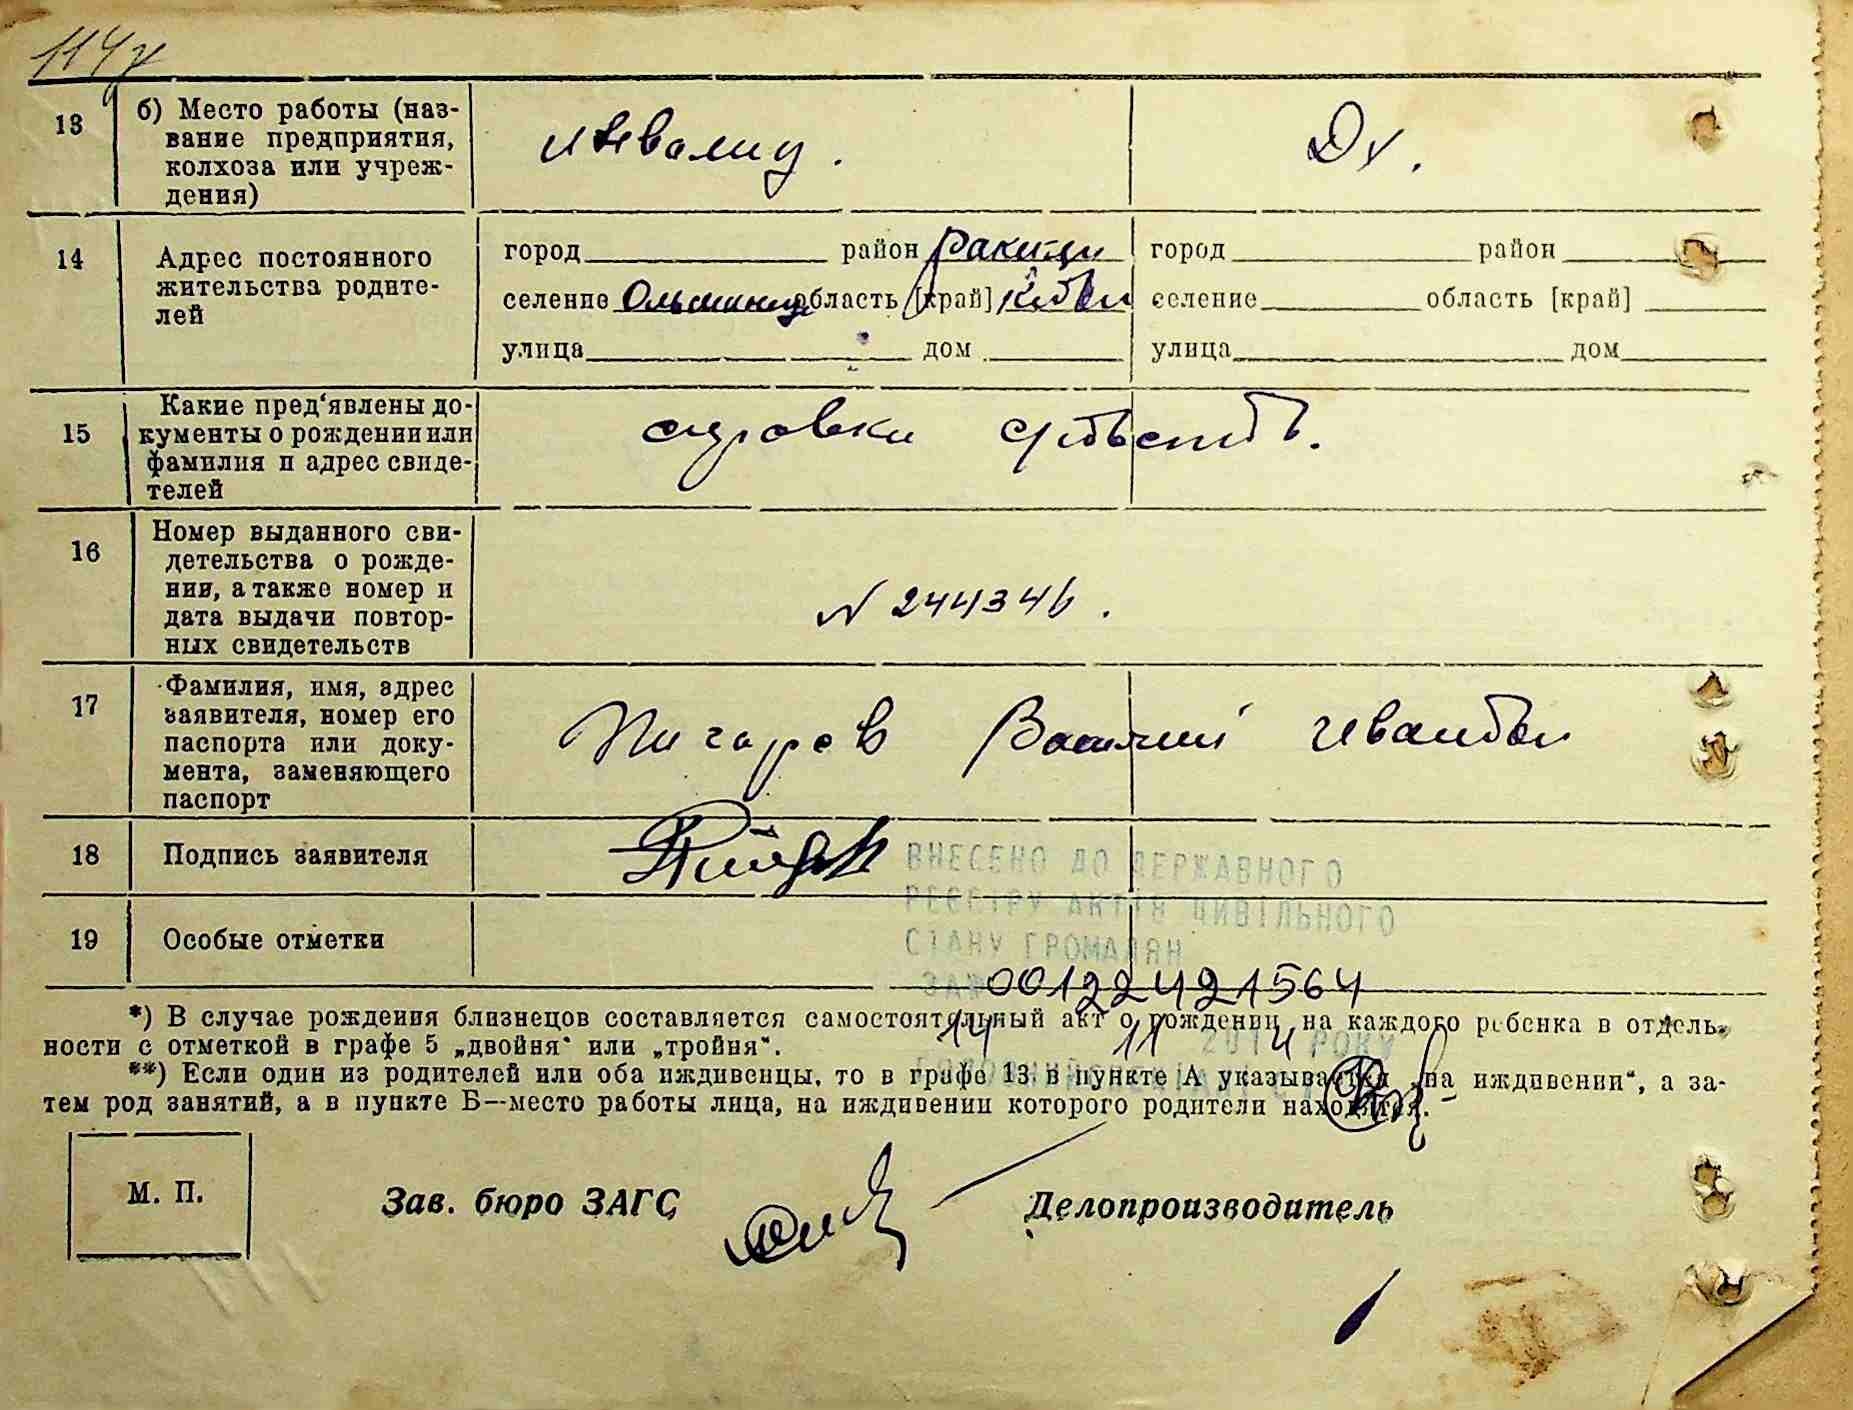 114
13 б) Место работы (наз-
вание предприятия,
колхоза или учреж-
дения)
инвалид. Дх.
14 Адрес постоянного
жительства родите-
лей
город район город район
селение область [край] селение область [край]
улица дом улица дом
15 Какие пред'явлены до-
кументы о рождении или
фамилия и адрес свиде-
телей
16 Номер выданного сви-
детельства о рожде-
нии, а также номер и
дата выдачи повтор-
ных свидетельств
N 244346.
17 Фамилия, имя, адрес
заявителя, номер его
паспорта или доку-
мента, заменяющего
паспорт
Василий
18 Подпись заявителя
ВНЕСЕНО ДО ДЕРЖАВНОГО
РЕЄСТРУ АКТІВ ЦИВІЛЬНОГО
19 Особые отметки
СТАНУ ГРОМАДЯН
ЗА № 00122421564
*) В случае рождения близнецов составляется самостоятельный акт о рождении на каждого ребенка в отдель-
ности с отметкой в графе 5 „двойня“ или „тройня“.
14 11 2014 РОКУ
**) Если один из родителей или оба иждивенцы, то в графе 13 в пункте А указывается „на иждивении“, а за-
тем род занятий, а в пункте Б—место работы лица, на иждивении которого родители находятся.
М. П. Зав. бюро ЗАГС Делопроизводитель